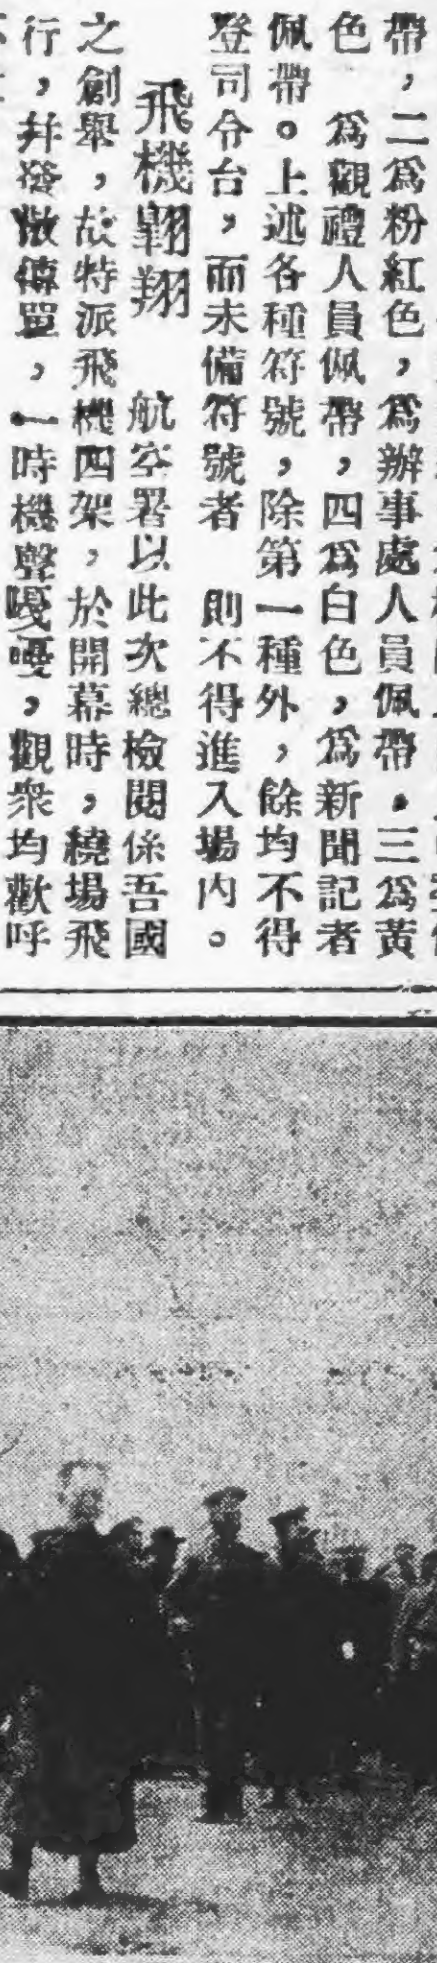 帶，二爲粉紅色，爲辦事處人員佩帶。三爲黃
色　爲觀禮人員佩帶，四爲白色，爲新聞記者
佩帶。上述各種符號，除第一種外，餘均不得
登司令台，而未備符號者　則不得進入場內。
飛機翺翔　航空署以此次總檢閱係吾國
之創舉，故特派飛機四架，於開幕時，繞場飛
行，幷發散傳單，一時機聲嗄嗄，觀衆均歡呼